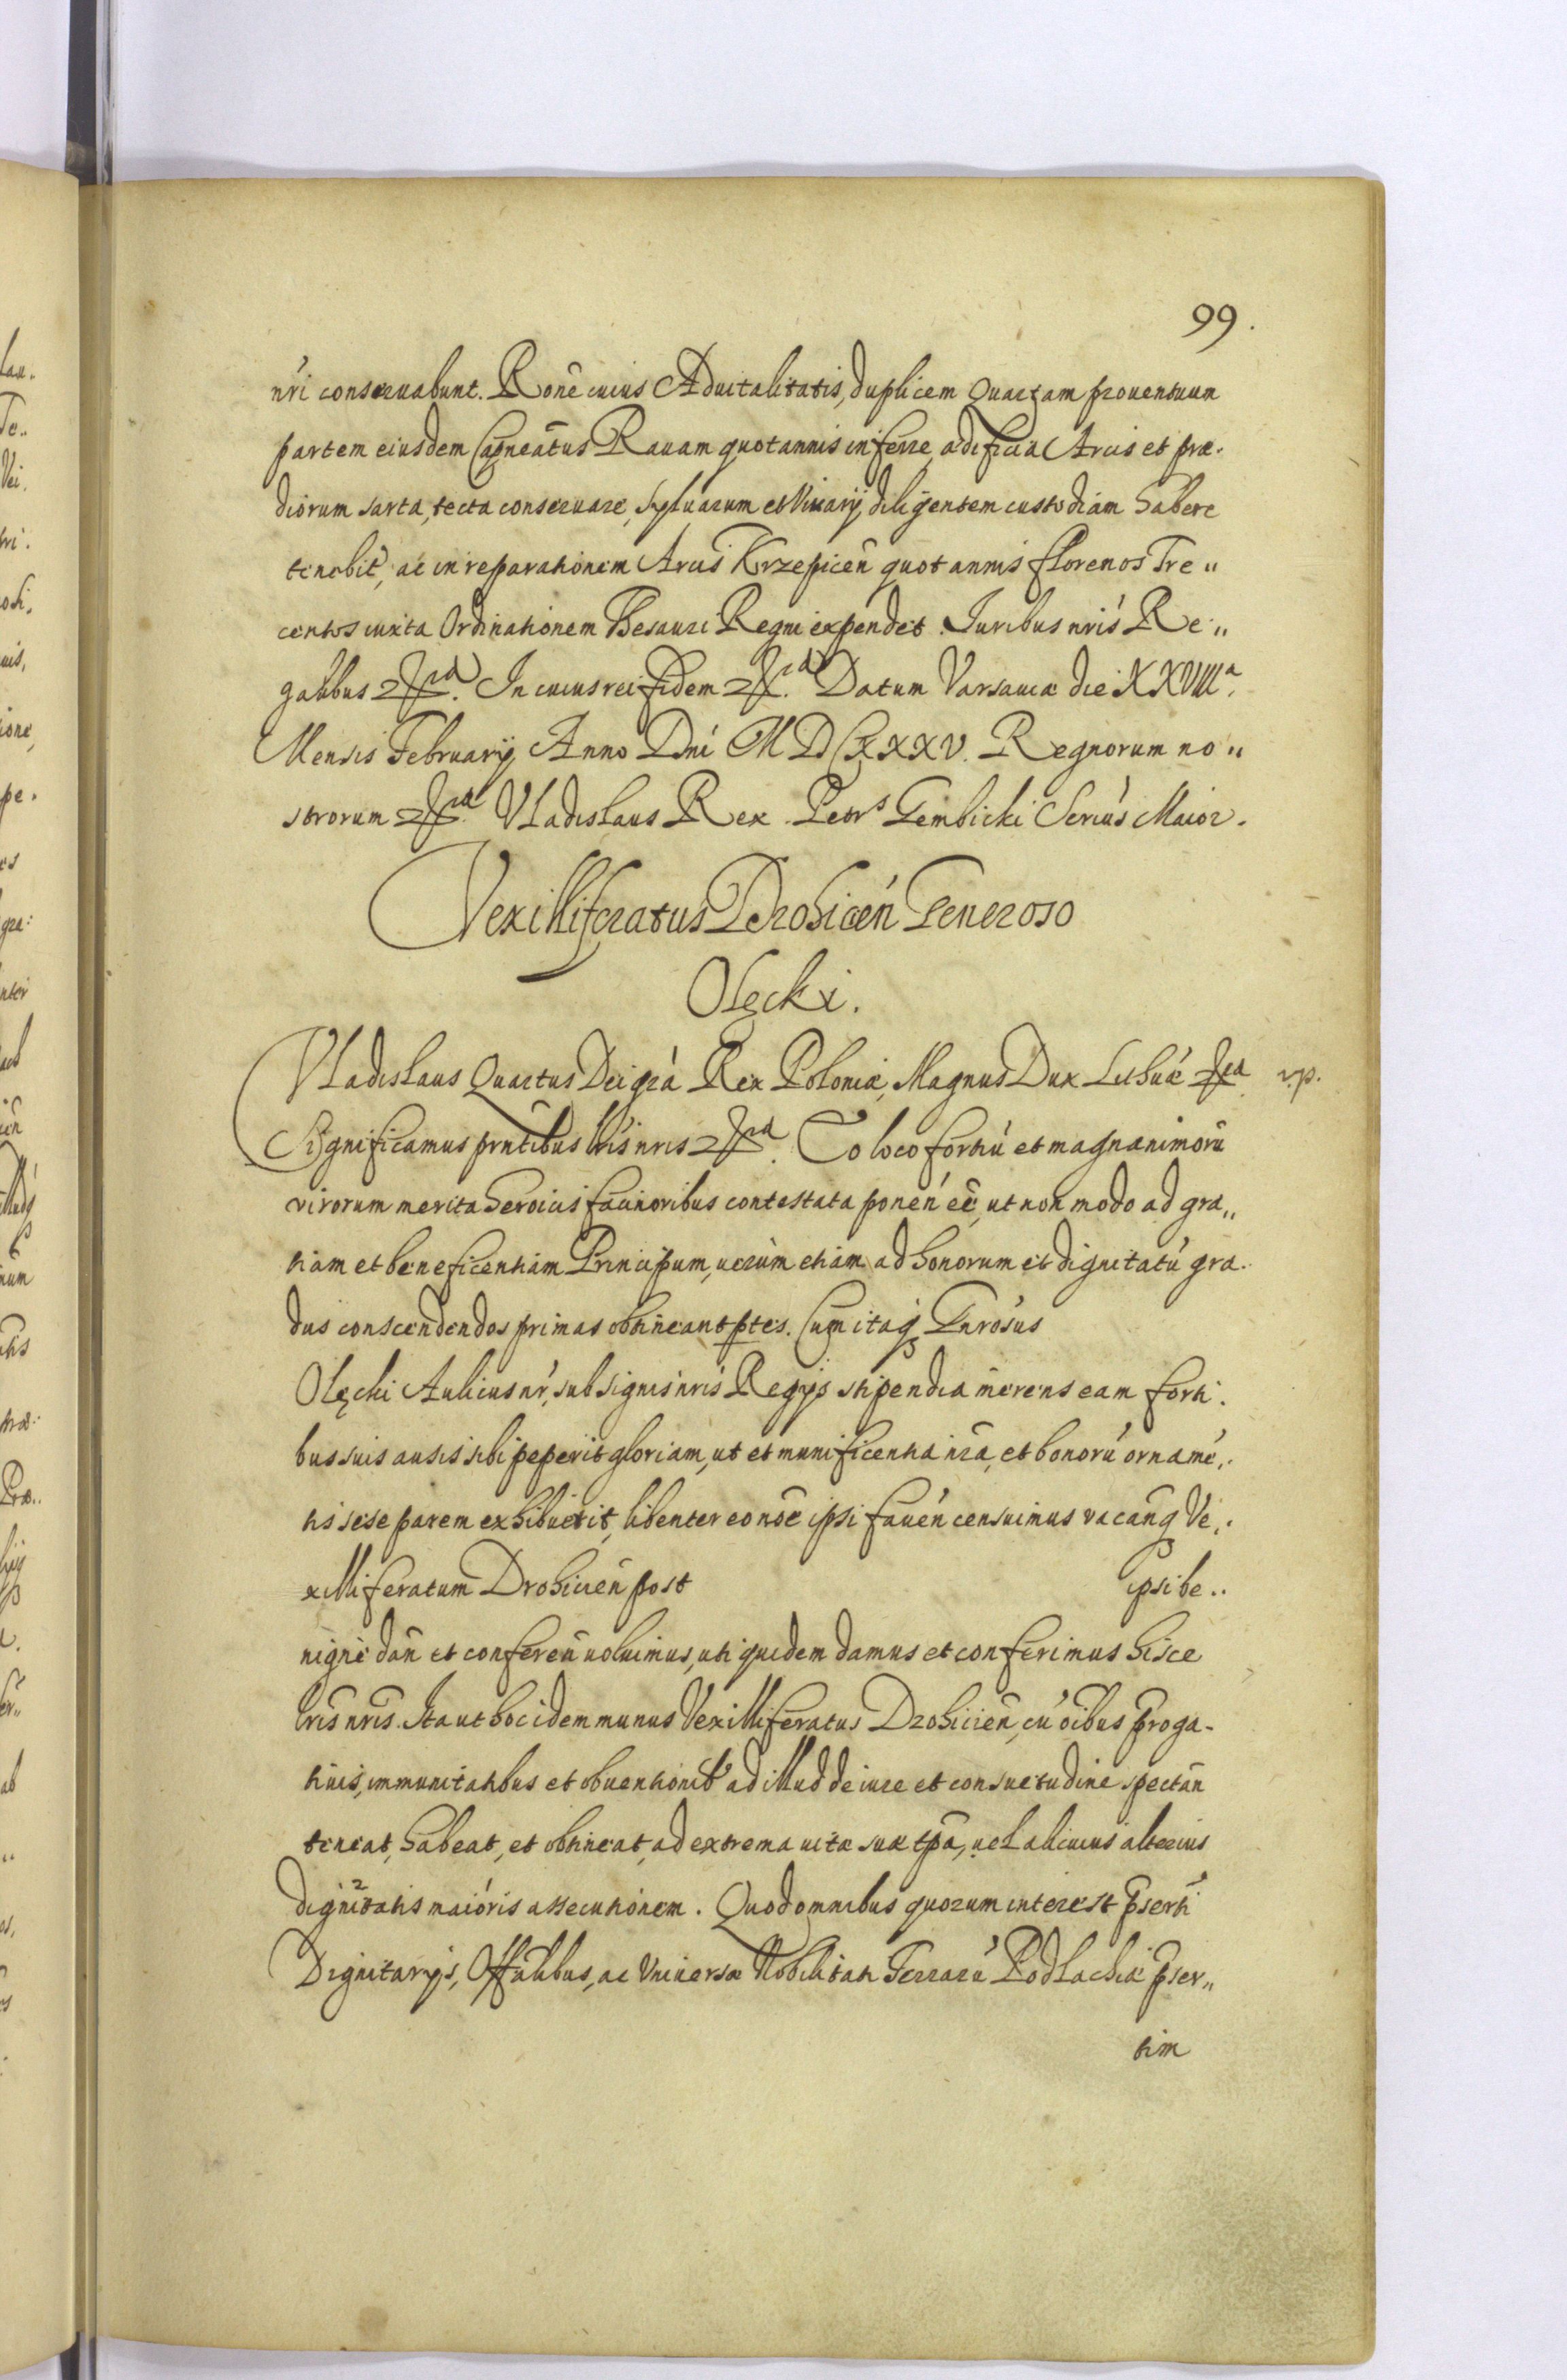 99.
nr̃i conseruabunt. Rone cuius Aduitalitatis, duplicem Quartam prouentuum
partem eiusdem Capneatus Rauam quotannis inferre, ædificia Arcis et præ-
diorum sarta, tecta conseruare, Syluarum et Viuarij diligentem custodiam habere
tenebit, ac in reparationem Arcis Krzepicen̄ quotannis florenos Tre„
centos iuxta Ordinationem Thesauri Regni expendet. Iuribus nris Re„
galibus etc. In cuius rei fidem etc. Datum Varsauiæ die XXVIIIa.
Mensis February Anno Dni MDCXXXV. Regnorum no„
strorum etc. Vladislaus Rex. Petrs Gembicki Scrius Maior.
Vexilliferatus Drohicen̄ Generoso
Olęcki.
Vladislaus Quartus Dei gra Rex Poloniæ, Magnus Dux Lithuæ etc. v.p.
Significamus prntibus lris nris etc. Eo loco fortiu et magnanimorũ
virorum merita heroicis facinoribus contestata ponen ẽe, ut non modo ad gra„
tiam et beneficentiam Principum, uerum etiam ad honorum et dignitatũ gra-
dus conscendendos primas obtineant ptes. Cum itaq Gnrosus
Olęcki Aulicus nr, sub signis nris Regijs stipendia merens eam forti-
bus suis ausis sibi peperit gloriam, ut et munificentia nra, et bonorũ ornamẽ„
tis sese parem exhibuerit, libenter eo noẽ ipsi fauen censuimus vacanq Ve„
xilliferatum Drohicien̄ post ipsi be„
nigne dan̄ et conferen̄ uoluimus, uti quidem damus et conferimus hisce
lris nris. Ita ut hoc idem munus Vexilliferatus Drohicien̄, cũ oibus proga-
tiuis, immunitatibus et obuentionib' ad illud de iure et consuetudine spectan̄
teneat, habeat, et obtineat, ad extrema uitæ suæ tpa, uel alicuius alterius
dignitatis maioris assecutionem. Quod omnibus quorum interest pserti
Dignitarijs, Offalibus, ac Vniuersæ Nobilitati Terrarũ Podlachiæ pser„
tim